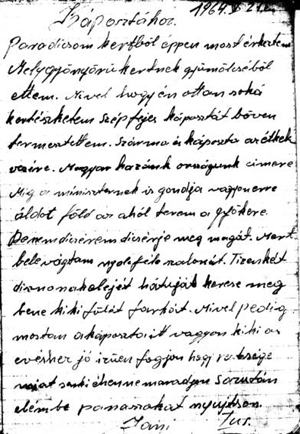 1964. V 24.
Káposztához.
Paradicsom kertből éppen most érkeztem
Melygyönyörű kertnek gyümölcséből
ettem. Mivel hogy én ottan soká
kertészketem Szép fejes káposztát bőven
termesztettem. Szárma és káposzta az étkek
vezére. Magyar hazánk országunk címere
Míg a miniszternek is gondja vagyon erre
áldot föld az ahól terem a gyökere.
De nem dicsérem dicsérje meg magát. Mert
bele vágtam nyolc féle szalonát. Tizenkét
disznónak eleját hátuját keresse meg
bene ki ki fülét farkát. Mivel pedig
mostan a káposzta itt vagyon ki ki az
evéshez jó izüen fogjon hogy
miat senki éhen ne maradjon azután
elémbe panaszokat nyujtson.
Jani